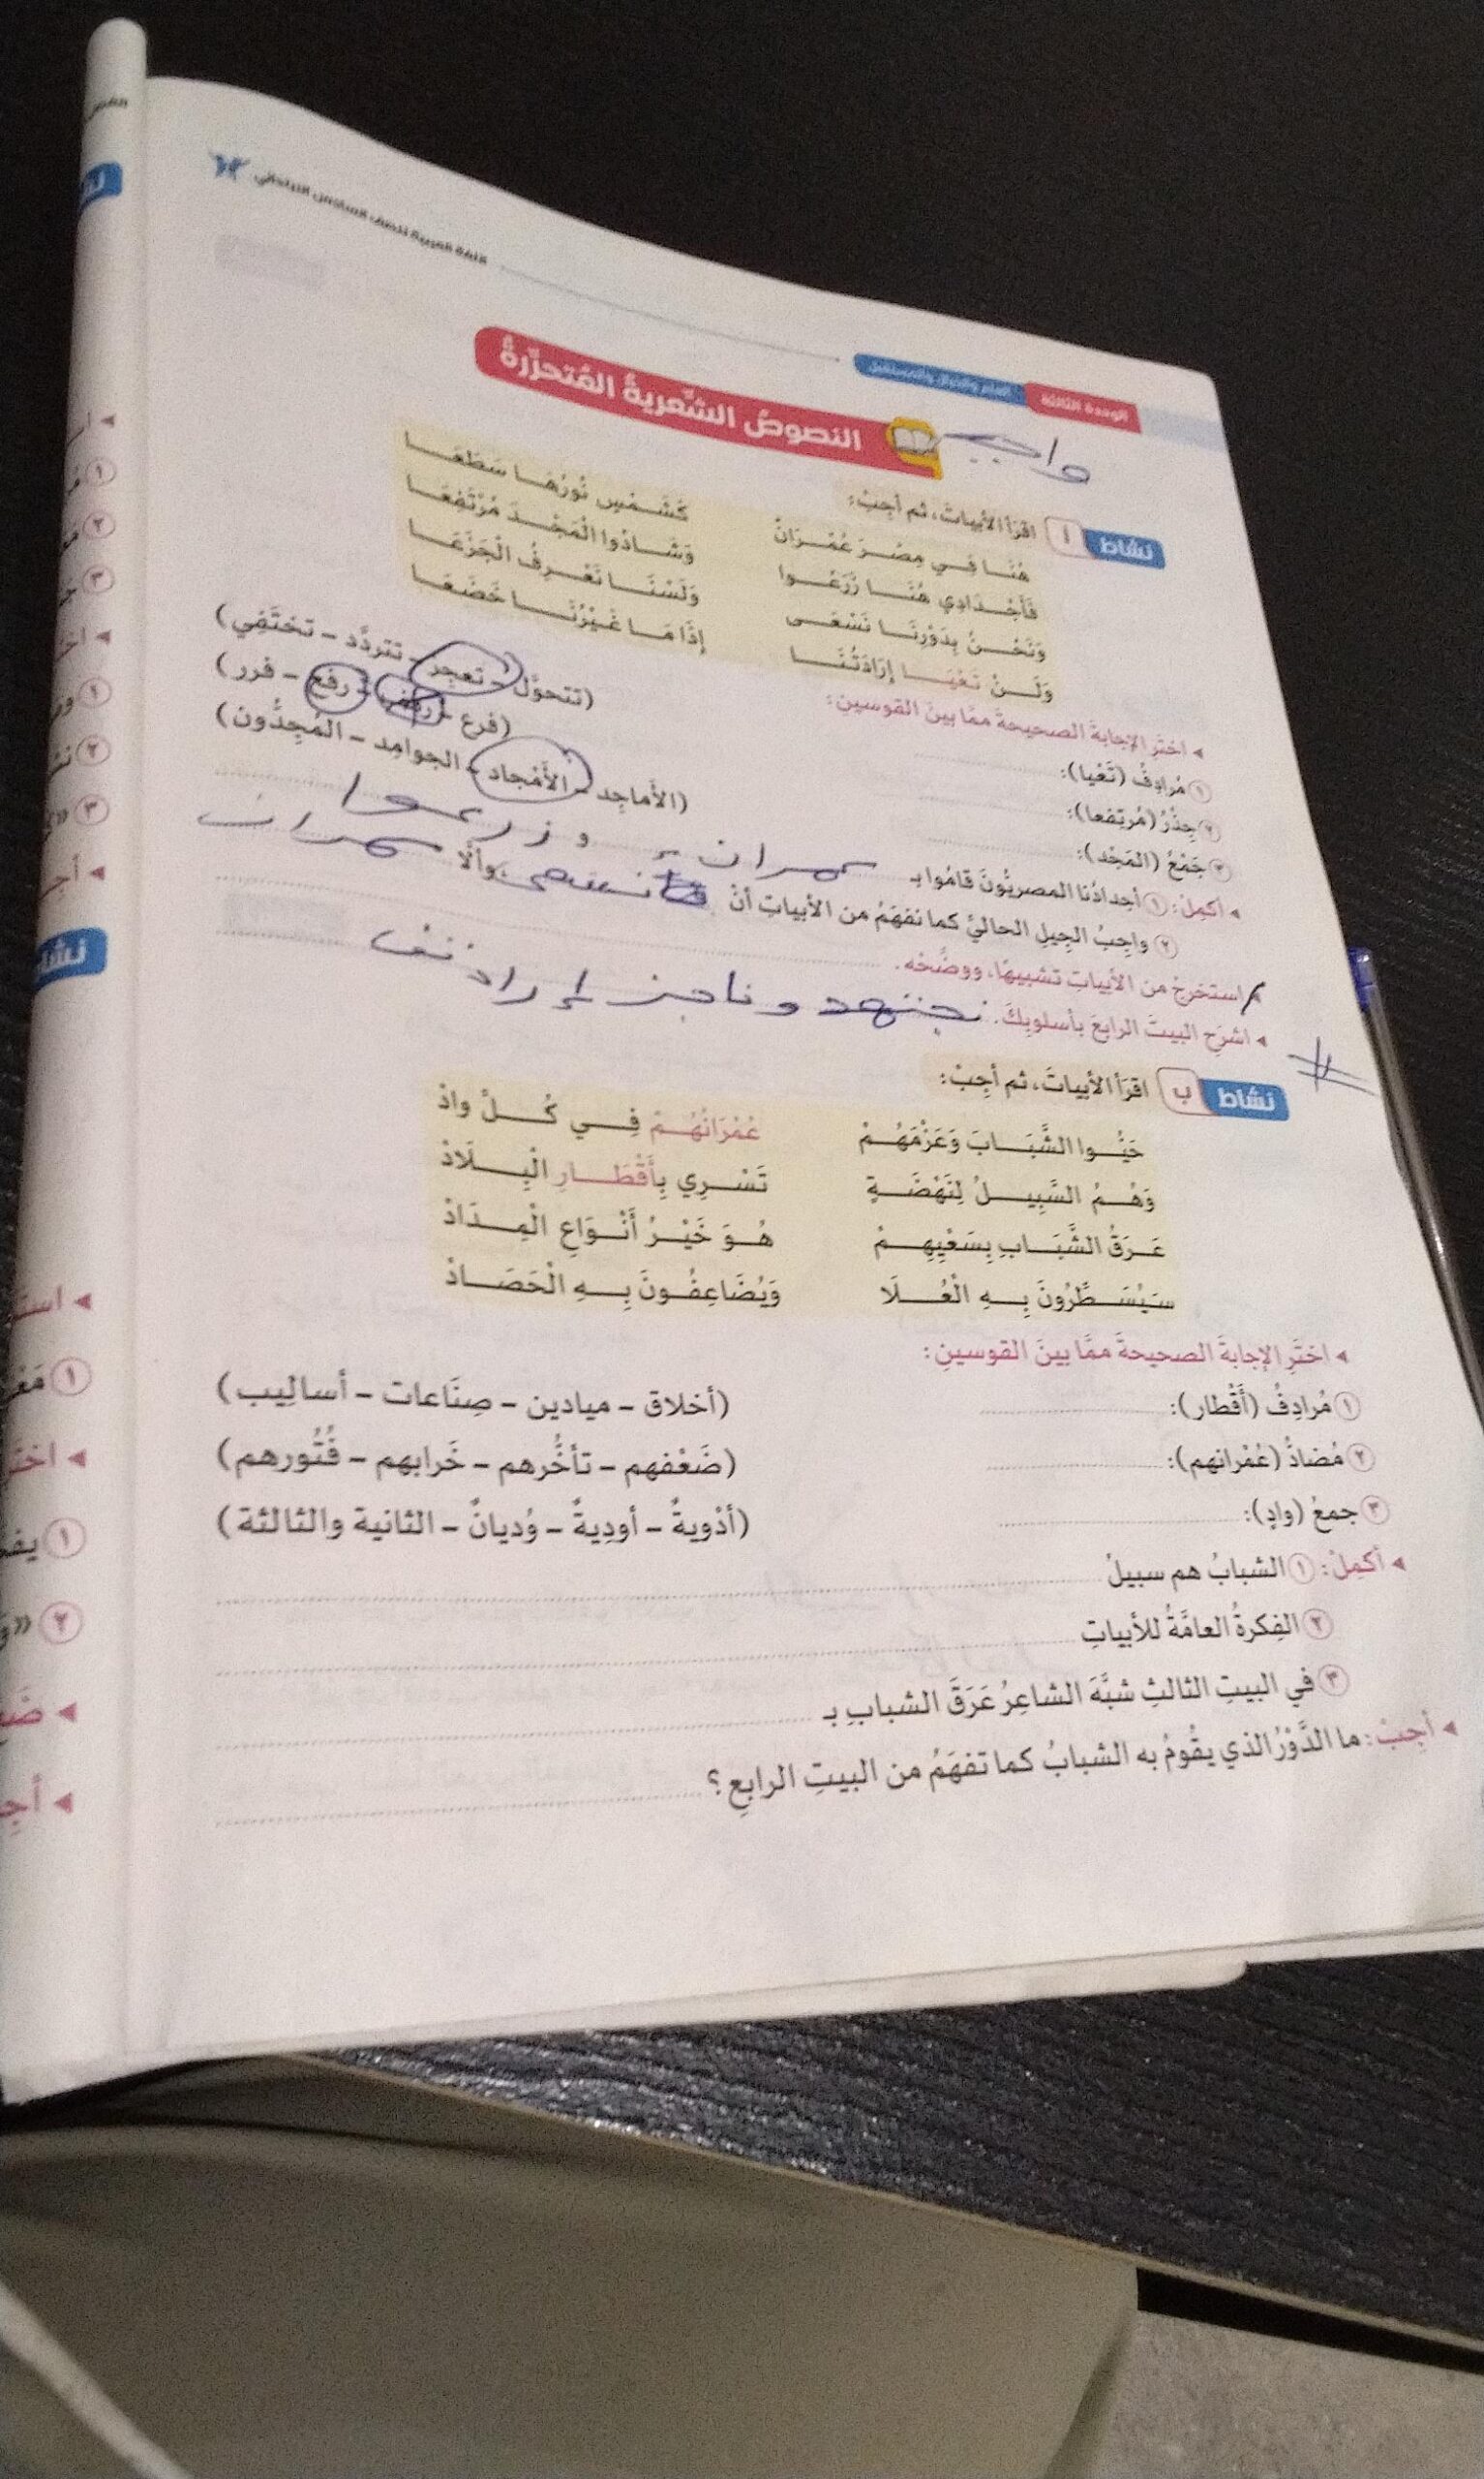 اللغة العربية للصف السادس الابتدائي ٦٣
الوحدة الثالثة
واجب
النصوصُ الشِّعريةُ المُتحرِّرةُ
نشاط أ اقرَأ الأبياتَ، ثم أجِبْ:
هُنَا فِي مِصْرَ عُمْرَانٌ كَشَمْسٍ نُورُهَا سَطَعَا
فَأَجْدَادِي هُنَا زَرَعُوا وَشَادُوا الْمَجْدَ مُرْتَفِعَا
وَنَحْنُ بِدَوْرِنَا نَسْعَى وَلَسْنَا نَعْرِفُ الْجَزَعَا
وَلَنْ تَعْيَا إِرَادَتُنَا إِذَا مَا غَيْرُنَا خَضَعَا
◂ اختَرِ الإجابةَ الصحيحةَ ممَّا بينَ القوسينِ:
١ مُرادِفُ (تَعْيا): (تتحوَّل - تعجِز - تتردَّد - تختَفِي)
٢ جِذْرُ (مُرتفعا): (فرع - رفر - رفع - فرر)
٣ جَمْعُ (المَجْد): (الأماجِد - الأَمْجاد - الجوامِد - المُجِدُّون)
◂ أكمِلْ: ١ أجدادُنا المصريُّونَ قامُوا بـ عمران وزرعوا
٢ واجِبُ الجِيلِ الحاليِّ كما نفهَمُ من الأبياتِ أنْ نسعى وألَّا
◂ استخرِجْ من الأبياتِ تشبيهًا، ووضِّحْه.
◂ اشرَحِ البيتَ الرابعَ بأسلوبِكَ. نجتهد
نشاط ب اقرَأ الأبياتَ، ثم أجِبْ:
حَيُّوا الشَّبَابَ وَعَزْمَهُمْ عُمْرَانُهُمْ فِي كُلِّ وادْ
وَهُمُ السَّبِيلُ لِنَهْضَةٍ تَسْرِي بِأَقْطَارِ الْبِلَادْ
عَرَقُ الشَّبَابِ بِسَعْيِهِمْ هُوَ خَيْرُ أَنْوَاعِ الْمِدَادْ
سَيُسَطِّرُونَ بِهِ الْعُلَا وَيُضَاعِفُونَ بِهِ الْحَصَادْ
◂ اختَرِ الإجابةَ الصحيحةَ ممَّا بينَ القوسينِ:
١ مُرادِفُ (أَقْطار): (أخلاق - ميادين - صِنَاعات - أسالِيب)
٢ مُضادُّ (عُمْرانهم): (ضَعْفهم - تأخُّرهم - خَرابهم - فُتُورهم)
٣ جمعُ (وادٍ): (أدْويةٌ - أودِيةٌ - وُديانٌ - الثانية والثالثة)
◂ أكمِلْ: ١ الشبابُ هم سبيلُ
٢ الفِكرةُ العامَّةُ للأبياتِ
٣ في البيتِ الثالثِ شبَّهَ الشاعِرُ عَرَقَ الشبابِ بـ
◂ أجِبْ: ما الدَّوْرُ الذي يقُومُ به الشبابُ كما تفهَمُ من البيتِ الرابعِ؟